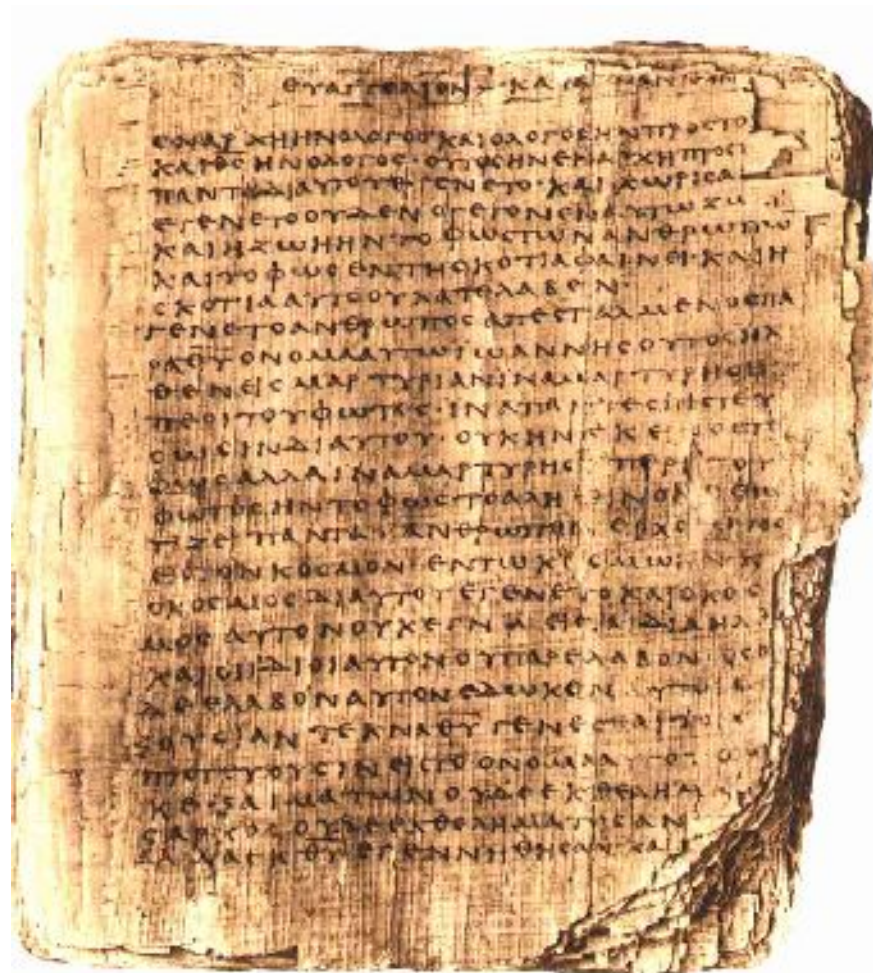 ΕΥΑΓΓΕΛΙΟΝ ΚΑ
ΕΝΑΡΧΗΗΝΟΛΟΓΟϹΚΑΙΟΛΟΓΟϹΗΝΠΡΟϹΤΟ
ΚΑΙΘϹΗΝΟΛΟΓΟϹ·ΟΥΤΟϹΗΝΕΝΑΡΧΗΠΡΟϹ
ΠΑΝΤΑΔΙΑΥΤΟΥΕΓΕΝΕΤΟ·ΚΑΙΧΩΡΙϹΑ
ΕΓΕΝΕΤΟΟΥΔΕΝΟΓΕΓΟΝΕΝΑΥΤΩΖΩ
ΚΑΙΗΖΩΗΗΝΤΟΦΩϹΤΩΝΑΝΘΡΩΠΩ
ΚΑΙΤΟΦΩϹΕΝΤΗϹΚΟΤΙΑΦΑΙΝΕΙ·ΚΑΙΗ
ϹΚΟΤΙΑΑΥΤΟΟΥΚΑΤΕΛΑΒΕΝ·
ΓΕΝΕΤΟΑΝΘΡΩΠΟϹΑΠΕϹΤΑΛΜΕΝΟϹΠΑ
ΡΑΘΥΟΝΟΜΑΑΥΤΩΙΩΑΝΝΗϹΟΥΤΟϹΗΛ
ΘΕΝΕΙϹΜΑΡΤΥΡΙΑΝΙΝΑΜΑΡΤΥΡΗϹΗ
ΠΕΡΙΤΟΥΦΩΤΟϹ·ΙΝΑΠΑΝΤΕϹΠΙϹΤΕΥ
ϹΩϹΙΝΔΙΑΥΤΟΥ·ΟΥΚΗΝΕΚΕΙΝΟϹΤΟ
ΦΩϹΑΛΛΑΙΝΑΜΑΡΤΥΡΗϹΗΠΕΡΙΤΟΥ
ΦΩΤΟϹΗΝΤΟΦΩϹΤΟΑΛΗΘΙΝΟΝ
ΤΙΖΕΙΠΑΝΤΑΑΝΘΡΩΠΟΝΕΡΧΟ
ΕΙϹΤΟΝΚΟϹΜΟΝ·ΕΝΤΩΚΟϹΜΩΗΝΚ
ΟΚΟϹΜΟϹΔΙΑΥΤΟΥΕΓΕΝΕΤΟΚΑΙΟΚΟϹ
ΜΟϹΑΥΤΟΝΟΥΚΕΓΝΩΕΙϹΤΑΙΔΙΑΗΛ
ΚΑΙΟΙΙΔΙΟΙΑΥΤΟΝΟΥΠΑΡΕΛΑΒΟΝ·ΟϹΟ
ΔΕΕΛΑΒΟΝΑΥΤΟΝΕΔΩΚΕΝΑΥΤΟΙ
ΞΟΥϹΙΑΝΤΕΚΝΑΘΥΓΕΝΕϹΘΑΙΤΟΙ
ΠΙϹΤΕΥΟΥϹΙΝΕΙϹΤΟΟΝΟΜΑΑΥΤΟ
ΚΕΞΑΙΜΑΤΩΝΟΥΔΕΕΚΘΕΛΗΜ
ϹΑΡΚΟϹΟΥΔΕΕΚΘΕΛΗΜΑΤΟϹΑΝ
ΑΛΛΑΕΚΘΥΕΓΕΝΝΗΘΗϹΑΝΚΑΙ